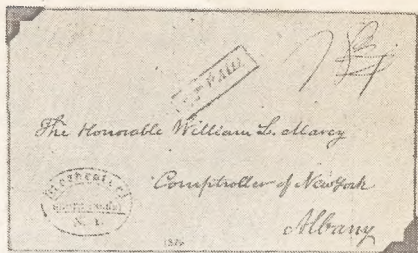 PAID
The Honorable William L. Marcy
Comptroller of New York
Albany
Rochester
N.Y.